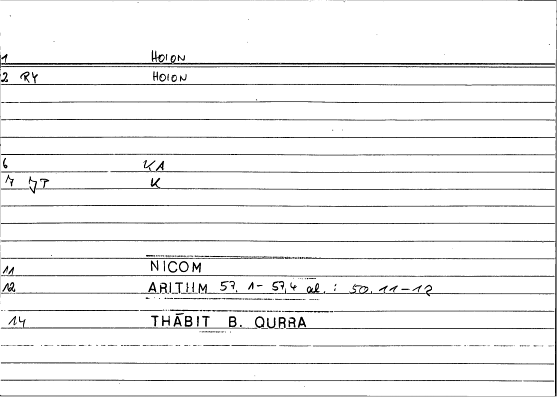 1 HOION
2 RY HOION
6 KA
7 JT K
11 NICOM
12 ARITHM 57, 1-57,4 al.: 50, 11-12
14 THĀBIT B. QURRA